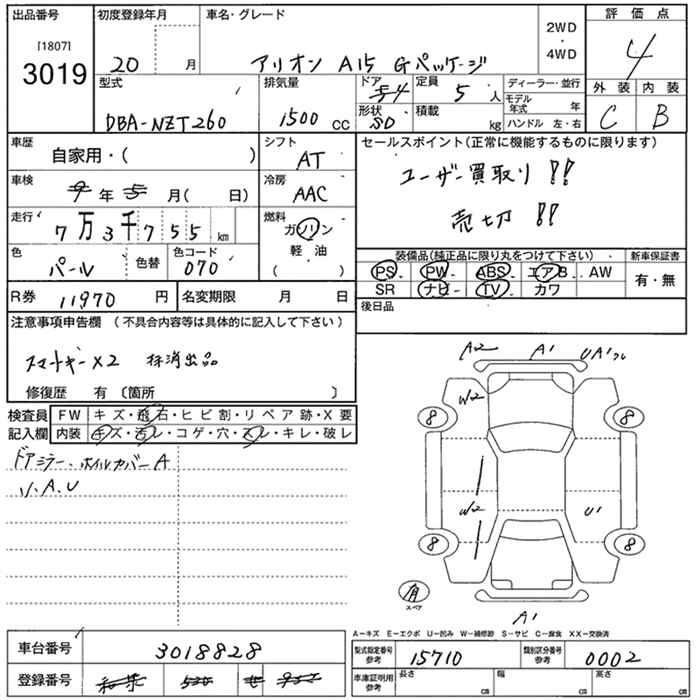 出品番号 初度登録年月 車名・グレード 評価点
[1807]
3019 20 月 アリオン A15 Gパッケージ 2WD・4WD 4
型式 排気量 ドア 定員 ディーラー・並行 外装 内装
DBA-NZT260 1500 CC 4 5 人 モデル年式 年 C B
形状 SD 積載 kg ハンドル 左・右
車歴 シフト セールスポイント(正常に機能するものに限ります)
自家用・( ) AT ユーザー買取り!!
車検 冷房
年 月( 日) AAC 売切!!
走行 燃料
7万3千755 km ガソリン
色 色替 色コード 軽・油 装備品(純正品に限り丸をつけて下さい) 新車保証書
パール 070 ( ) PS PW ABS エアB AW 有・無
SR ナビ TV カワ
R券 11970 円 名変期限 月 日 後日品
注意事項申告欄 (不具合内容等は具体的に記入して下さい)
スマートキー×2 抹消出品
修復歴 有 〔箇所 〕
検査員 FW キズ・飛石・ヒビ割・リペア跡・X要
記入欄 内装 キズ・汚レ・コゲ・穴・スレ・キレ・破レ
ドアミラー、ホイルカバーA
小A.U
A2 A1 UA1
W2
8 8
W2 U1
8 8
有
スペア
A1
A-キズ E-エクボ U-凹み W-補修跡 S-サビ C-腐食 XX-交換済
車台番号 3018828 型式指定番号 参考 15710 類別区分番号 参考 0002
登録番号 車庫証明用 参考 長さ cm 幅 cm 高さ cm